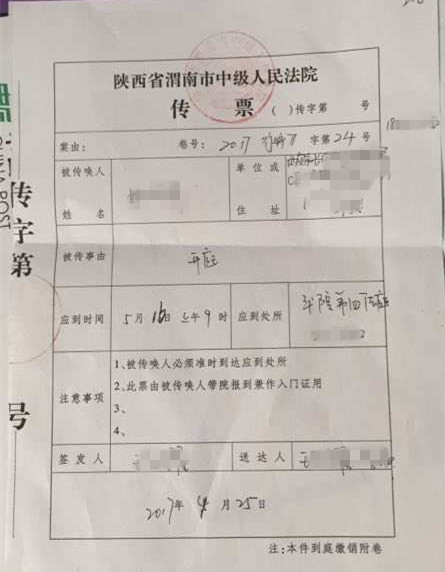 陕西省渭南市中级人民法院
传 票 ( )传字第 号
案由: 卷号: 2017 字第24号
被传唤人
姓 名
单 位 或
住 址
被传事由 开庭
应到时间 5月16日上午9时 应到处所 本院第四法庭
注意事项
1、被传唤人必须准时到达应到处所
2、此票由被传唤人带院报到兼作入门证用
3、
4、
签 发 人
送 达 人
2017年4月25日
注:本件到庭缴销附卷
传字第
号